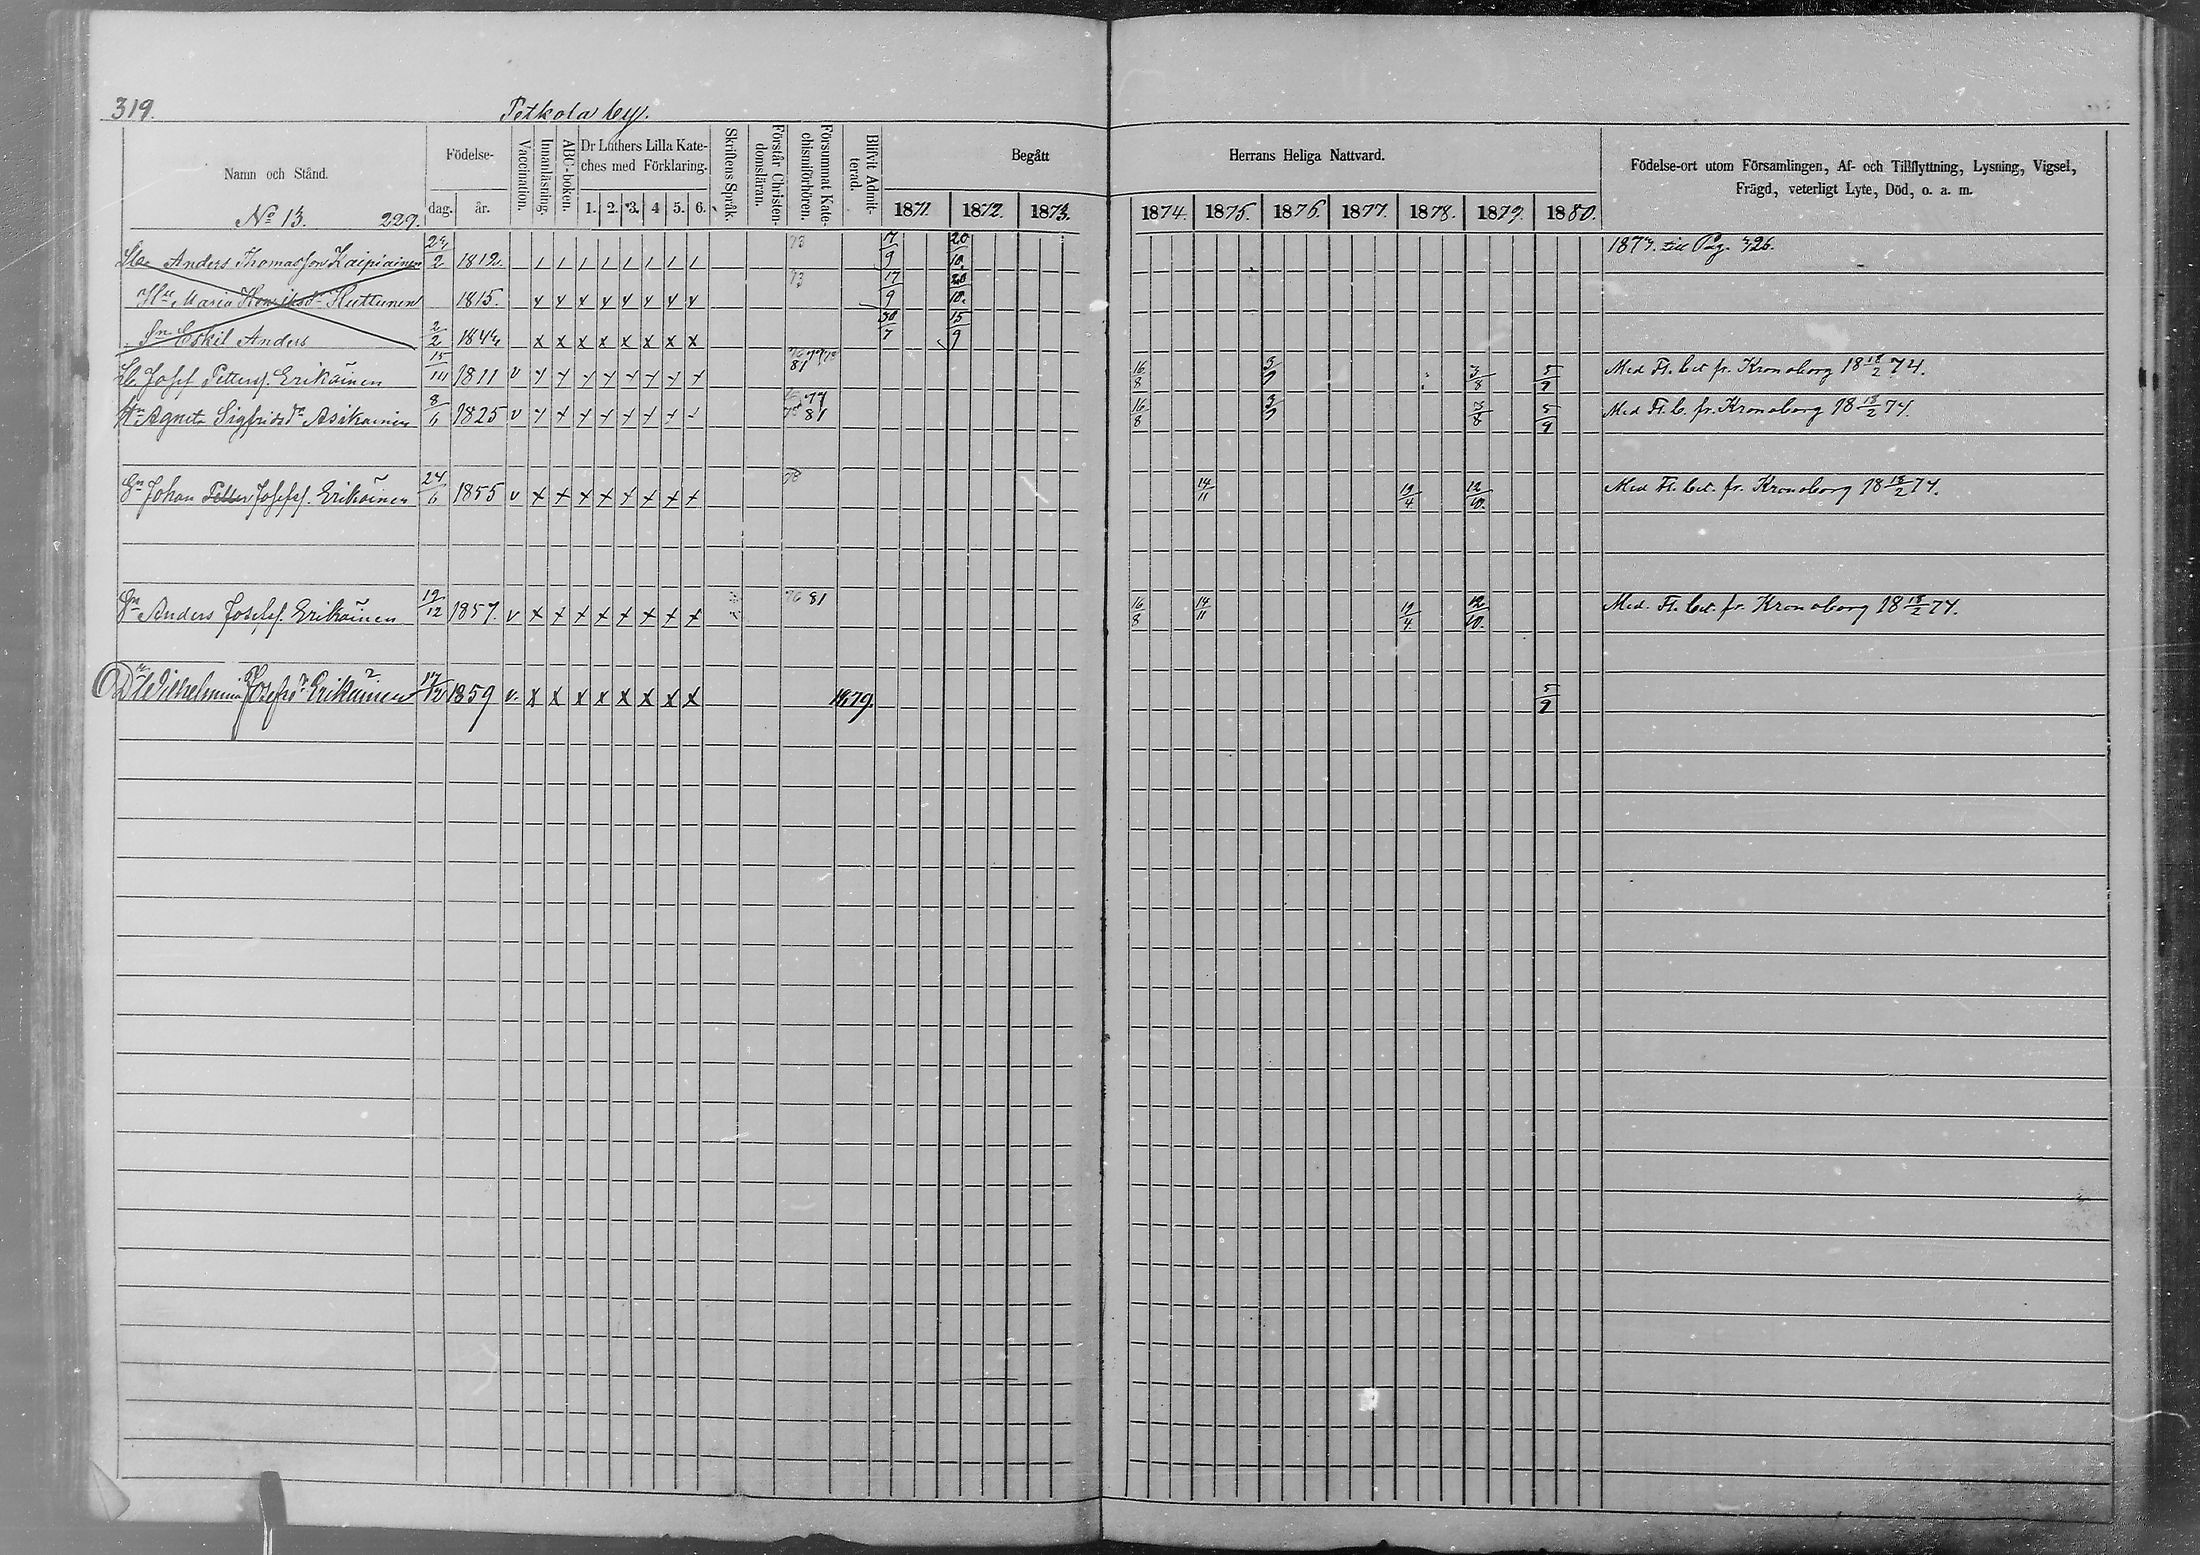 319.
Petkola by.
Namn och Stånd.
Födelse-
dag.
år.
Vaccination.
Innanläsning.
ABC-boken.
Dr Luthers Lilla Kate-
ches med Förklaring.
1. 2. 3. 4 5. 6.
Skriftens Språk.
Förstår Christen-
domsläran.
Försummat Kate-
chismiförhören.
Blifvit Admit-
terad.
Begått
1871. 1872. 1873.
Herrans Heliga Nattvard.
1874. 1875. 1876. 1877. 1878. 1879. 1880.
Födelse-ort utom Församlingen, Af- och Tillflyttning, Lysning, Vigsel,
Frägd, veterligt Lyte, Död, o. a. m.
No 13. 229.
Anders Thomasson Kaipiainen 1812 73 20/10 till Pag. 326.
Hu Maria Henriksdr Huttunen 1815. x x x x x x x x 73 17/9 20/10.
Sn Eskil Anders 2/2 1844 x x x x x x x x 30/7 15/9
Josef Petterss. Erikäinen 15/III 1811 v x x x x x x x x 81 16/8 3/9 3/8 5/9 Med Fl. bet fr. Kronoborg 18 18/2 74.
Hu Agneta Sigfridsdr Asikainen 8/6 1825 v x x x x x x x x 77 81 16/8 3/9 3/8 5/9 Med Fl. b. fr. Kronoborg 18 18/2 74.
Sn Johan Petter Josefss. Erikäinen 24/6 1855 v x x x x x x x x 78 14/11 19/4. 12/10. Med Fl. bet. fr. Kronoborg 18 18/2 74.
Sn Anders Josefss. Erikäinen 19/12 1857. v x x x x x x x x 76 81 16/8 14/11 19/4. 12/10. Med. Fl. bet. fr. Kronoborg 18 18/2 74.
Dr Wilhelmina Josefsdr Erikäinen 17/12 1859 v. x x x x x x x x 1879. 5/9